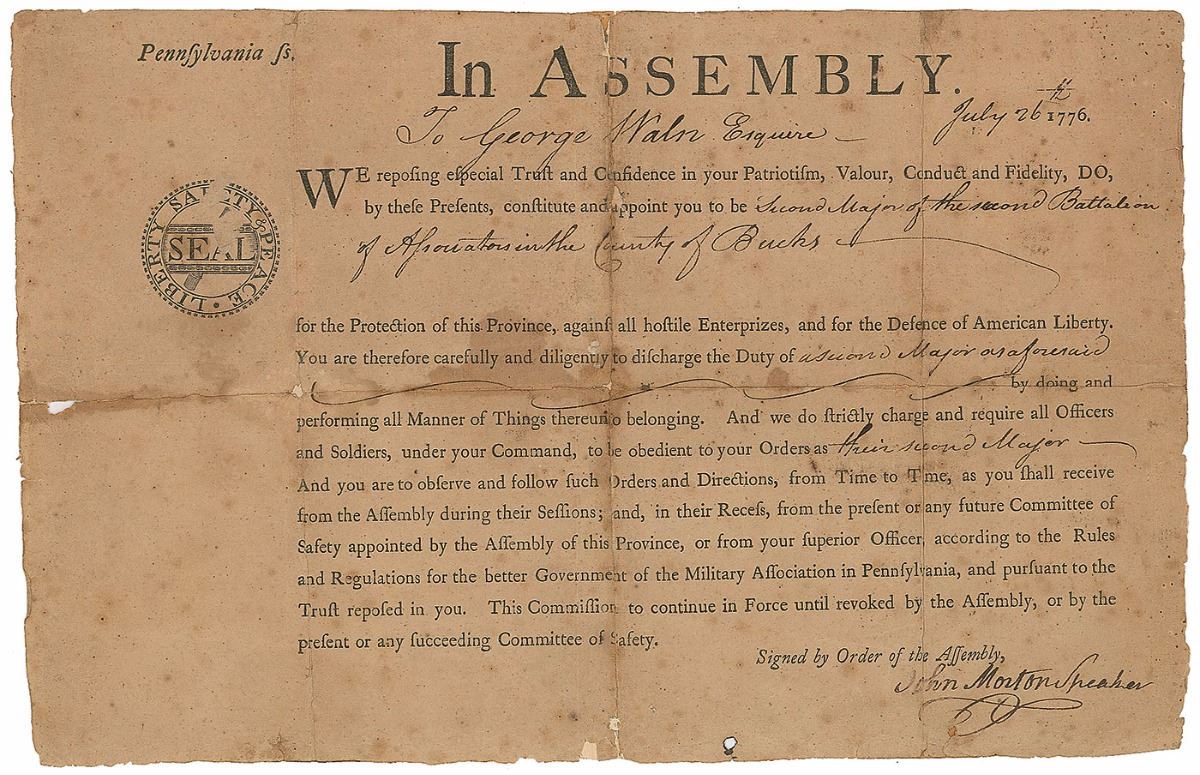 Pennſylvania ſs.
In ASSEMBLY.
July 26th 1776.
To George Waln Esquire
WE repoſing eſpecial Truſt and Confidence in your Patriotiſm, Valour, Conduct and Fidelity, DO,
by theſe Preſents, conſtitute and appoint you to be second Major of the second Battalion
of Aſsociators in the County of Bucks
LIBERTY SAFETY & PEACE ·
SEAL
for the Protection of this Province, againſt all hoſtile Enterprizes, and for the Defence of American Liberty.
You are therefore carefully and diligently to diſcharge the Duty of a second Major as aforesaid
by doing and
performing all Manner of Things thereunto belonging. And we do ſtrictly charge and require all Officers
and Soldiers, under your Command, to be obedient to your Orders as their second Major
And you are to obſerve and follow ſuch Orders and Directions, from Time to Time, as you ſhall receive
from the Aſſembly during their Seſſions; and, in their Receſs, from the preſent or any future Committee of
Safety appointed by the Aſſembly of this Province, or from your ſuperior Officer, according to the Rules
and Regulations for the better Government of the Military Aſſociation in Pennſylvania, and purſuant to the
Truſt repoſed in you. This Commiſſion to continue in Force until revoked by the Aſſembly, or by the
preſent or any ſucceeding Committee of Safety.
Signed by Order of the Aſſembly,
John Morton Speaker